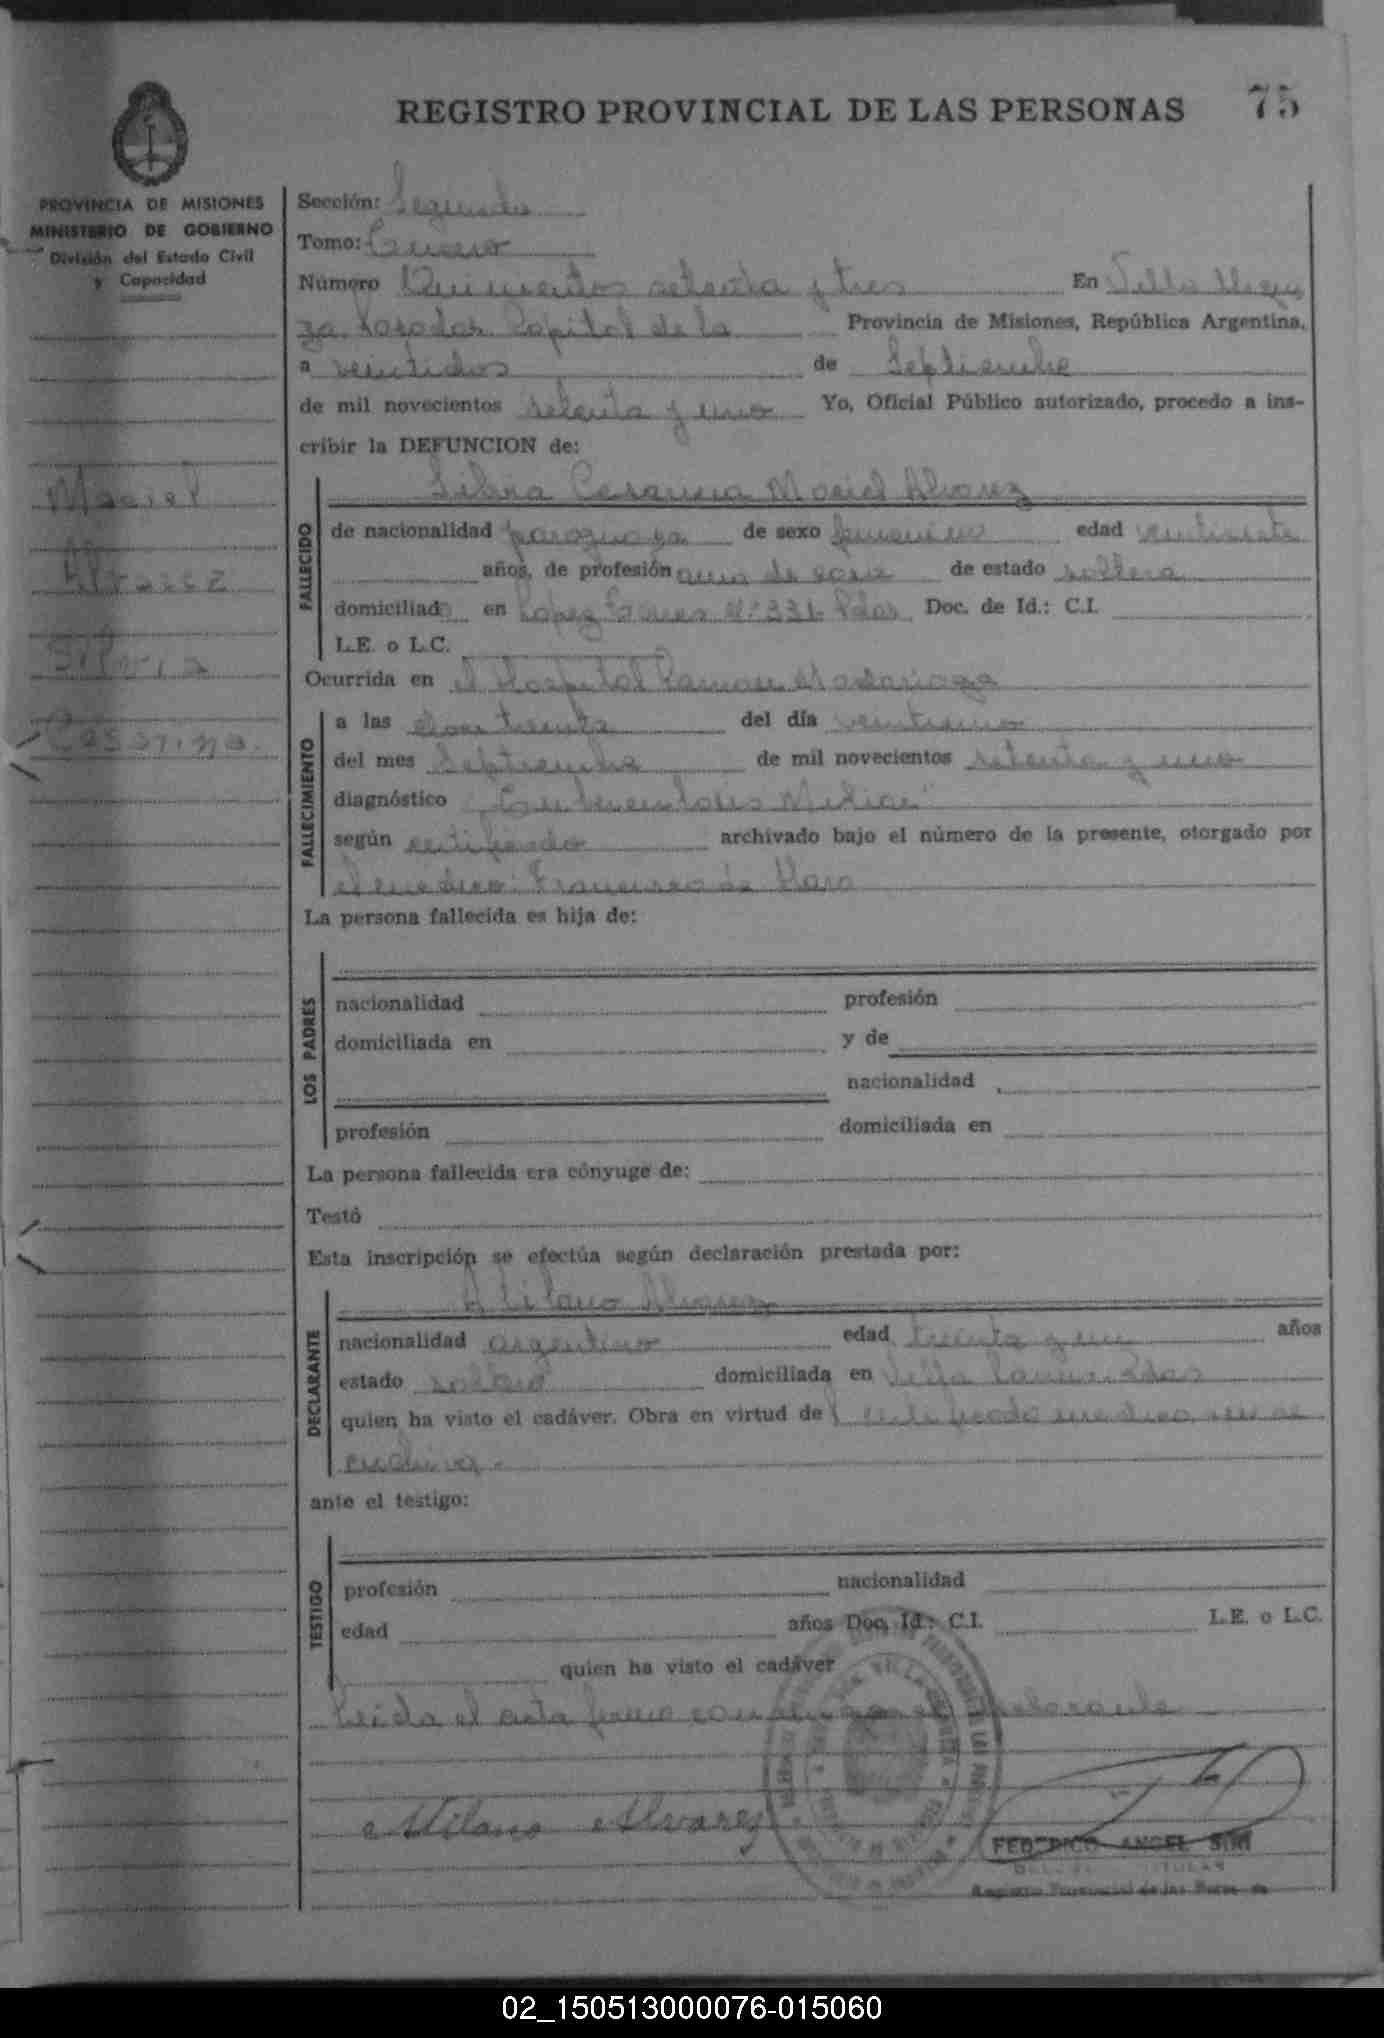 REGISTRO PROVINCIAL DE LAS PERSONAS 75
PROVINCIA DE MISIONES
MINISTERIO DE GOBIERNO
División del Estado Civil
y Capacidad
Maciel
Alvarez
Silvia
Cesarina.
Sección: Segunda
Tomo: Tercero
Número Quinientos setenta y tres En Villa Urqui
za Posadas Capital de la Provincia de Misiones, República Argentina,
a veintidos de Septiembre
de mil novecientos setenta y uno Yo, Oficial Público autorizado, procedo a ins-
cribir la DEFUNCION de:
Silvia Cesarina Maciel Alvarez
FALLECIDO
de nacionalidad paraguaya de sexo femenino edad veintisiete
años, de profesión ama de casa de estado soltera
domiciliada en Lopez Torres Nº 331 Pdas. Doc. de Id.: C.I.
L.E. o L.C.
Ocurrida en el Hospital Ramon Madariaga
FALLECIMIENTO
a las dos treinta del día veintiuno
del mes Septiembre de mil novecientos setenta y uno
diagnóstico
según certificado archivado bajo el número de la presente, otorgado por
el medico: Francisco de Haro
La persona fallecida es hija de:
LOS PADRES
nacionalidad profesión
domiciliada en y de
nacionalidad
profesión domiciliada en
La persona fallecida era cónyuge de:
Testó
Esta inscripción se efectúa según declaración prestada por:
Atilano Alvarez
DECLARANTE
nacionalidad argentino edad treinta y un años
estado soltero domiciliada en Villa Pdas
quien ha visto el cadáver. Obra en virtud del certificado medico que se
archiva.
ante el testigo:
TESTIGO
profesión nacionalidad
edad años Doc. Id.: C.I. L.E. o L.C.
quien ha visto el cadáver
Leida el acta firma conmigo el declarante
Atilano Alvarez
FEDERICO ANGEL
TITULAR
Registro Provincial de las Personas
02_150513000076-015060